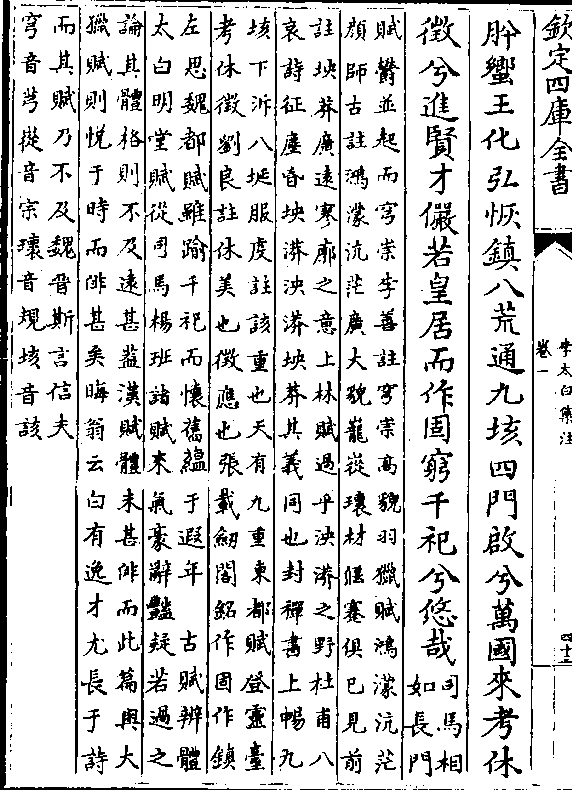 欽定四庫全書
李太白集注
卷一
四十三
肸蠁王化弘恢鎮八荒通九垓四門啟兮萬國來考休
徵兮進賢才儼若皇居而作固窮千祀兮悠哉
司馬相
如長門
賦鬱並起而穹崇李善註穹崇高貌羽獵賦鴻濛沆茫
顔師古註鴻濛沆茫廣大貌巃嵸瓌材偃蹇俱已見前
註坱莽廣逺寥廓之意上林賦過乎泱漭之野杜甫八
哀詩征塵昏坱漭泱漭坱莽其義同也封禪書上暢九
垓下泝八埏服虔註該重也天有九重東都賦登靈臺
考休徵劉良註休美也徴應也張載劒閣銘作固作鎮
左思魏都賦雖踰千祀而懷舊蘊于遐年　古賦辨體
太白明堂賦從司馬楊班諸賦來氣豪辭豔疑若過之
論其體格則不及逺甚葢漢賦體未甚俳而此篇與大
獵賦則悅于時而俳甚矣晦翁云白有逸才尤長于詩
而其賦乃不及魏晋斯言信夫
穹音芎嵸音宗瓌音規垓音該